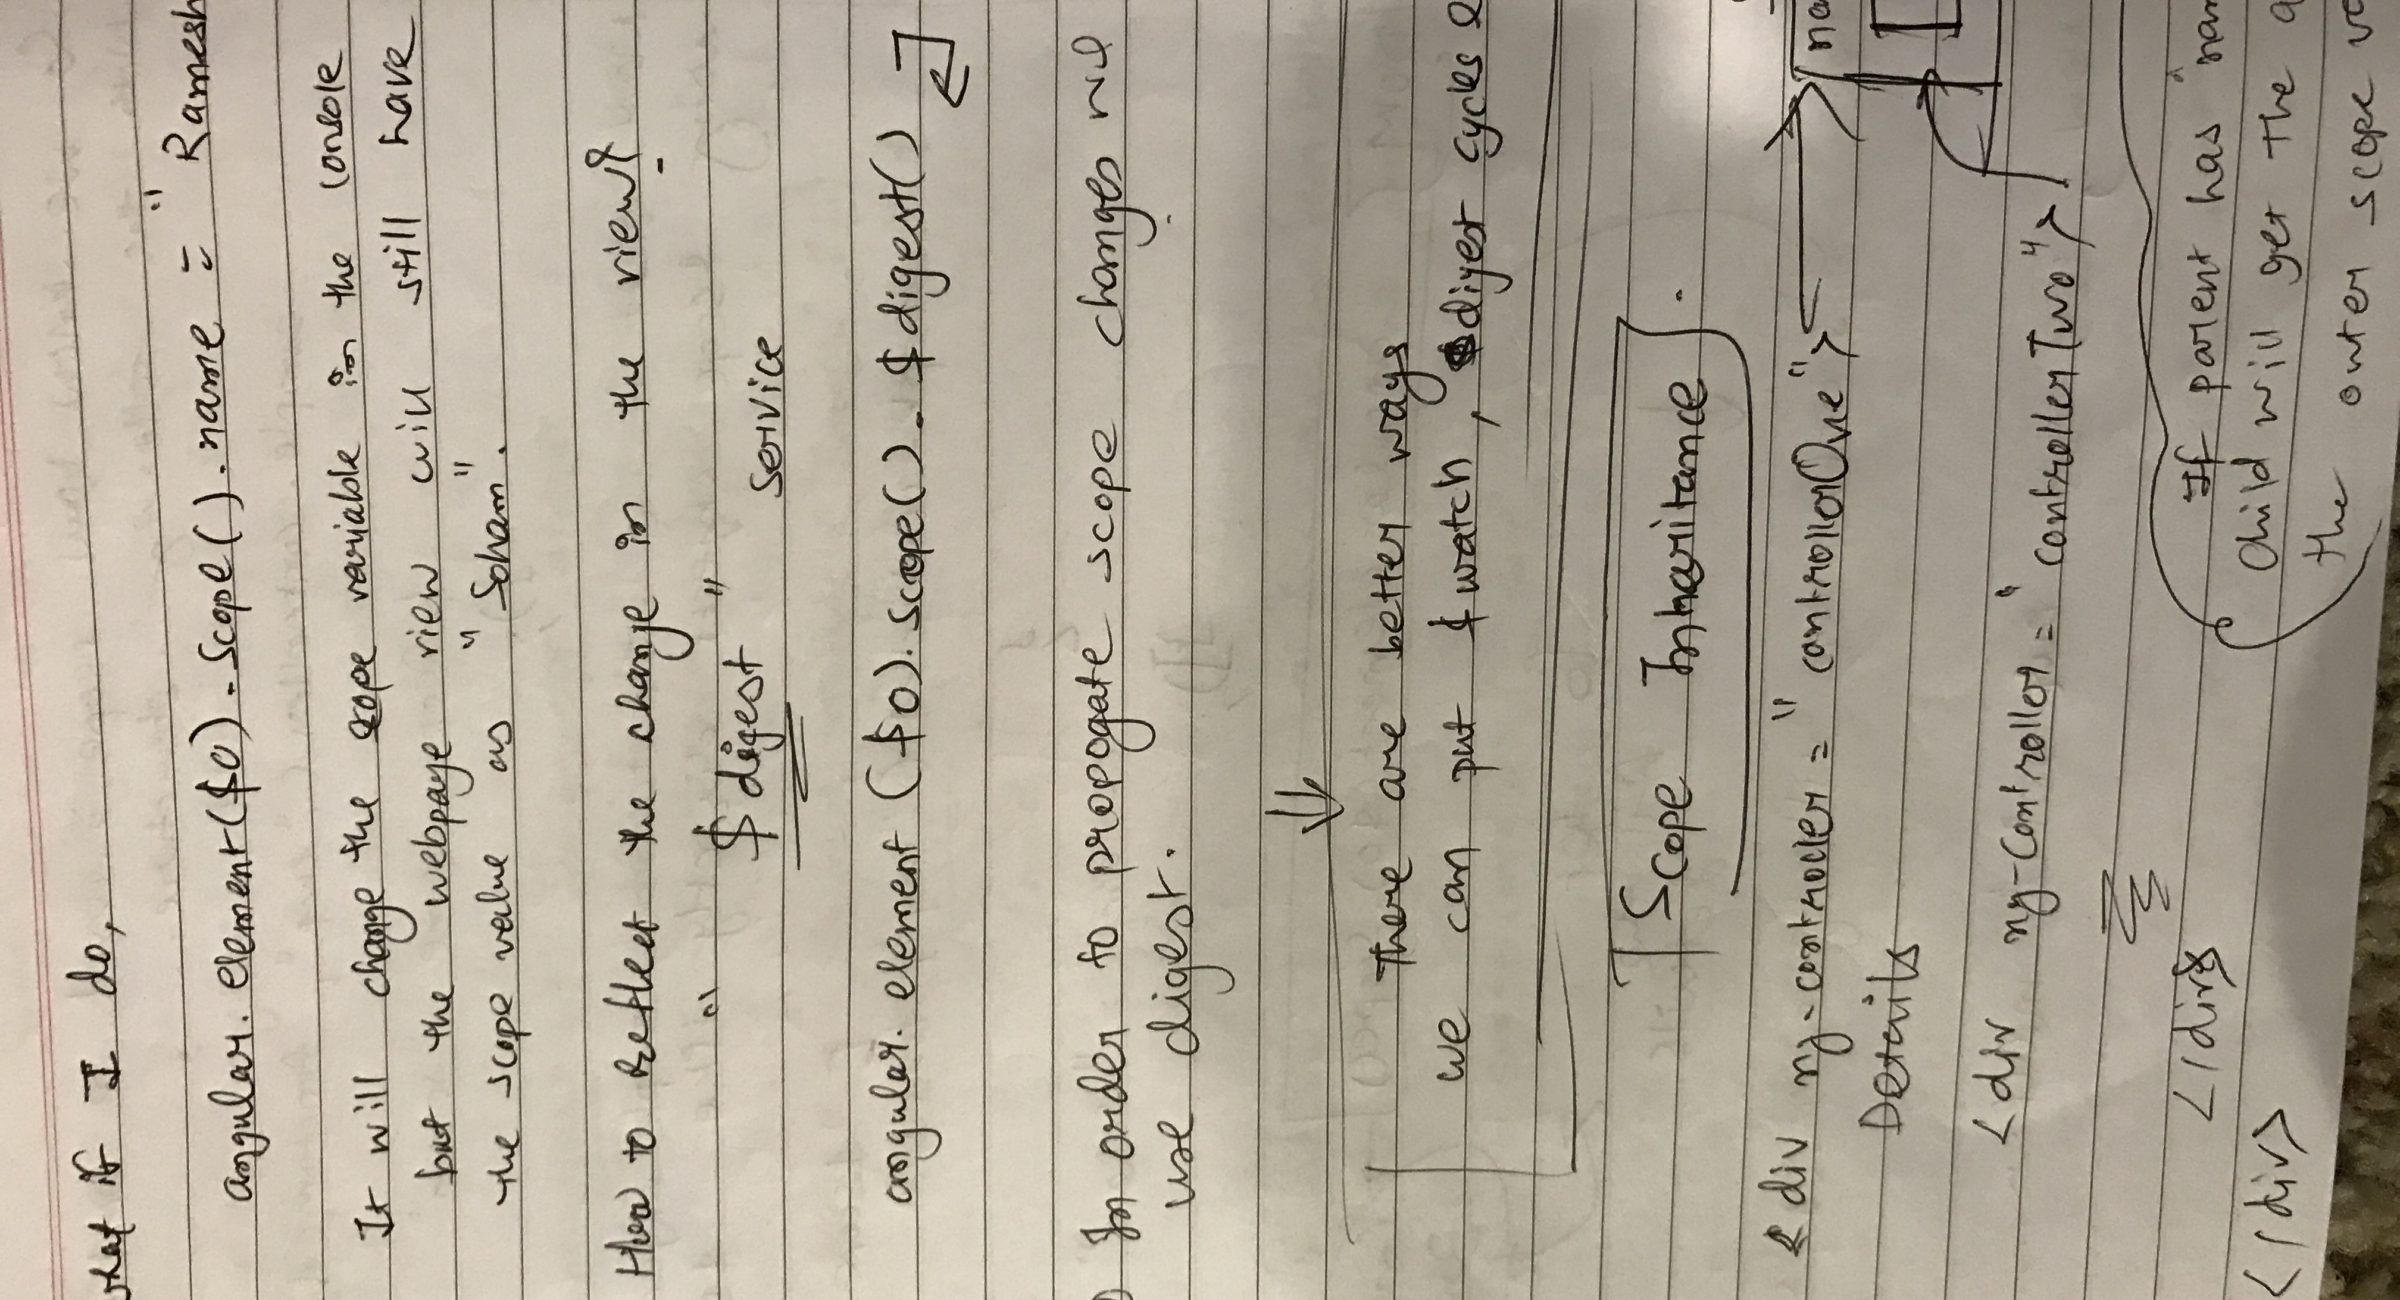 what if I do,
angular. element($0).Scope().name = "Ramesh
It will change the scope variable in the console
but the webpage view will still have
the scope value as "Soham".
How to Reflect the change in the view?
"$digest" service
angular. element ($0). scope(). $digest()
In order to propogate scope changes we
use digest.
There are better ways
we can put $watch, $digest cycles
Scope Inharitance.
<div ng-controller = "controllerOne">
Details
<div ng-Controller = "controllerTwo">
</div>
</div>
If parent has
child will get the
the outer scope